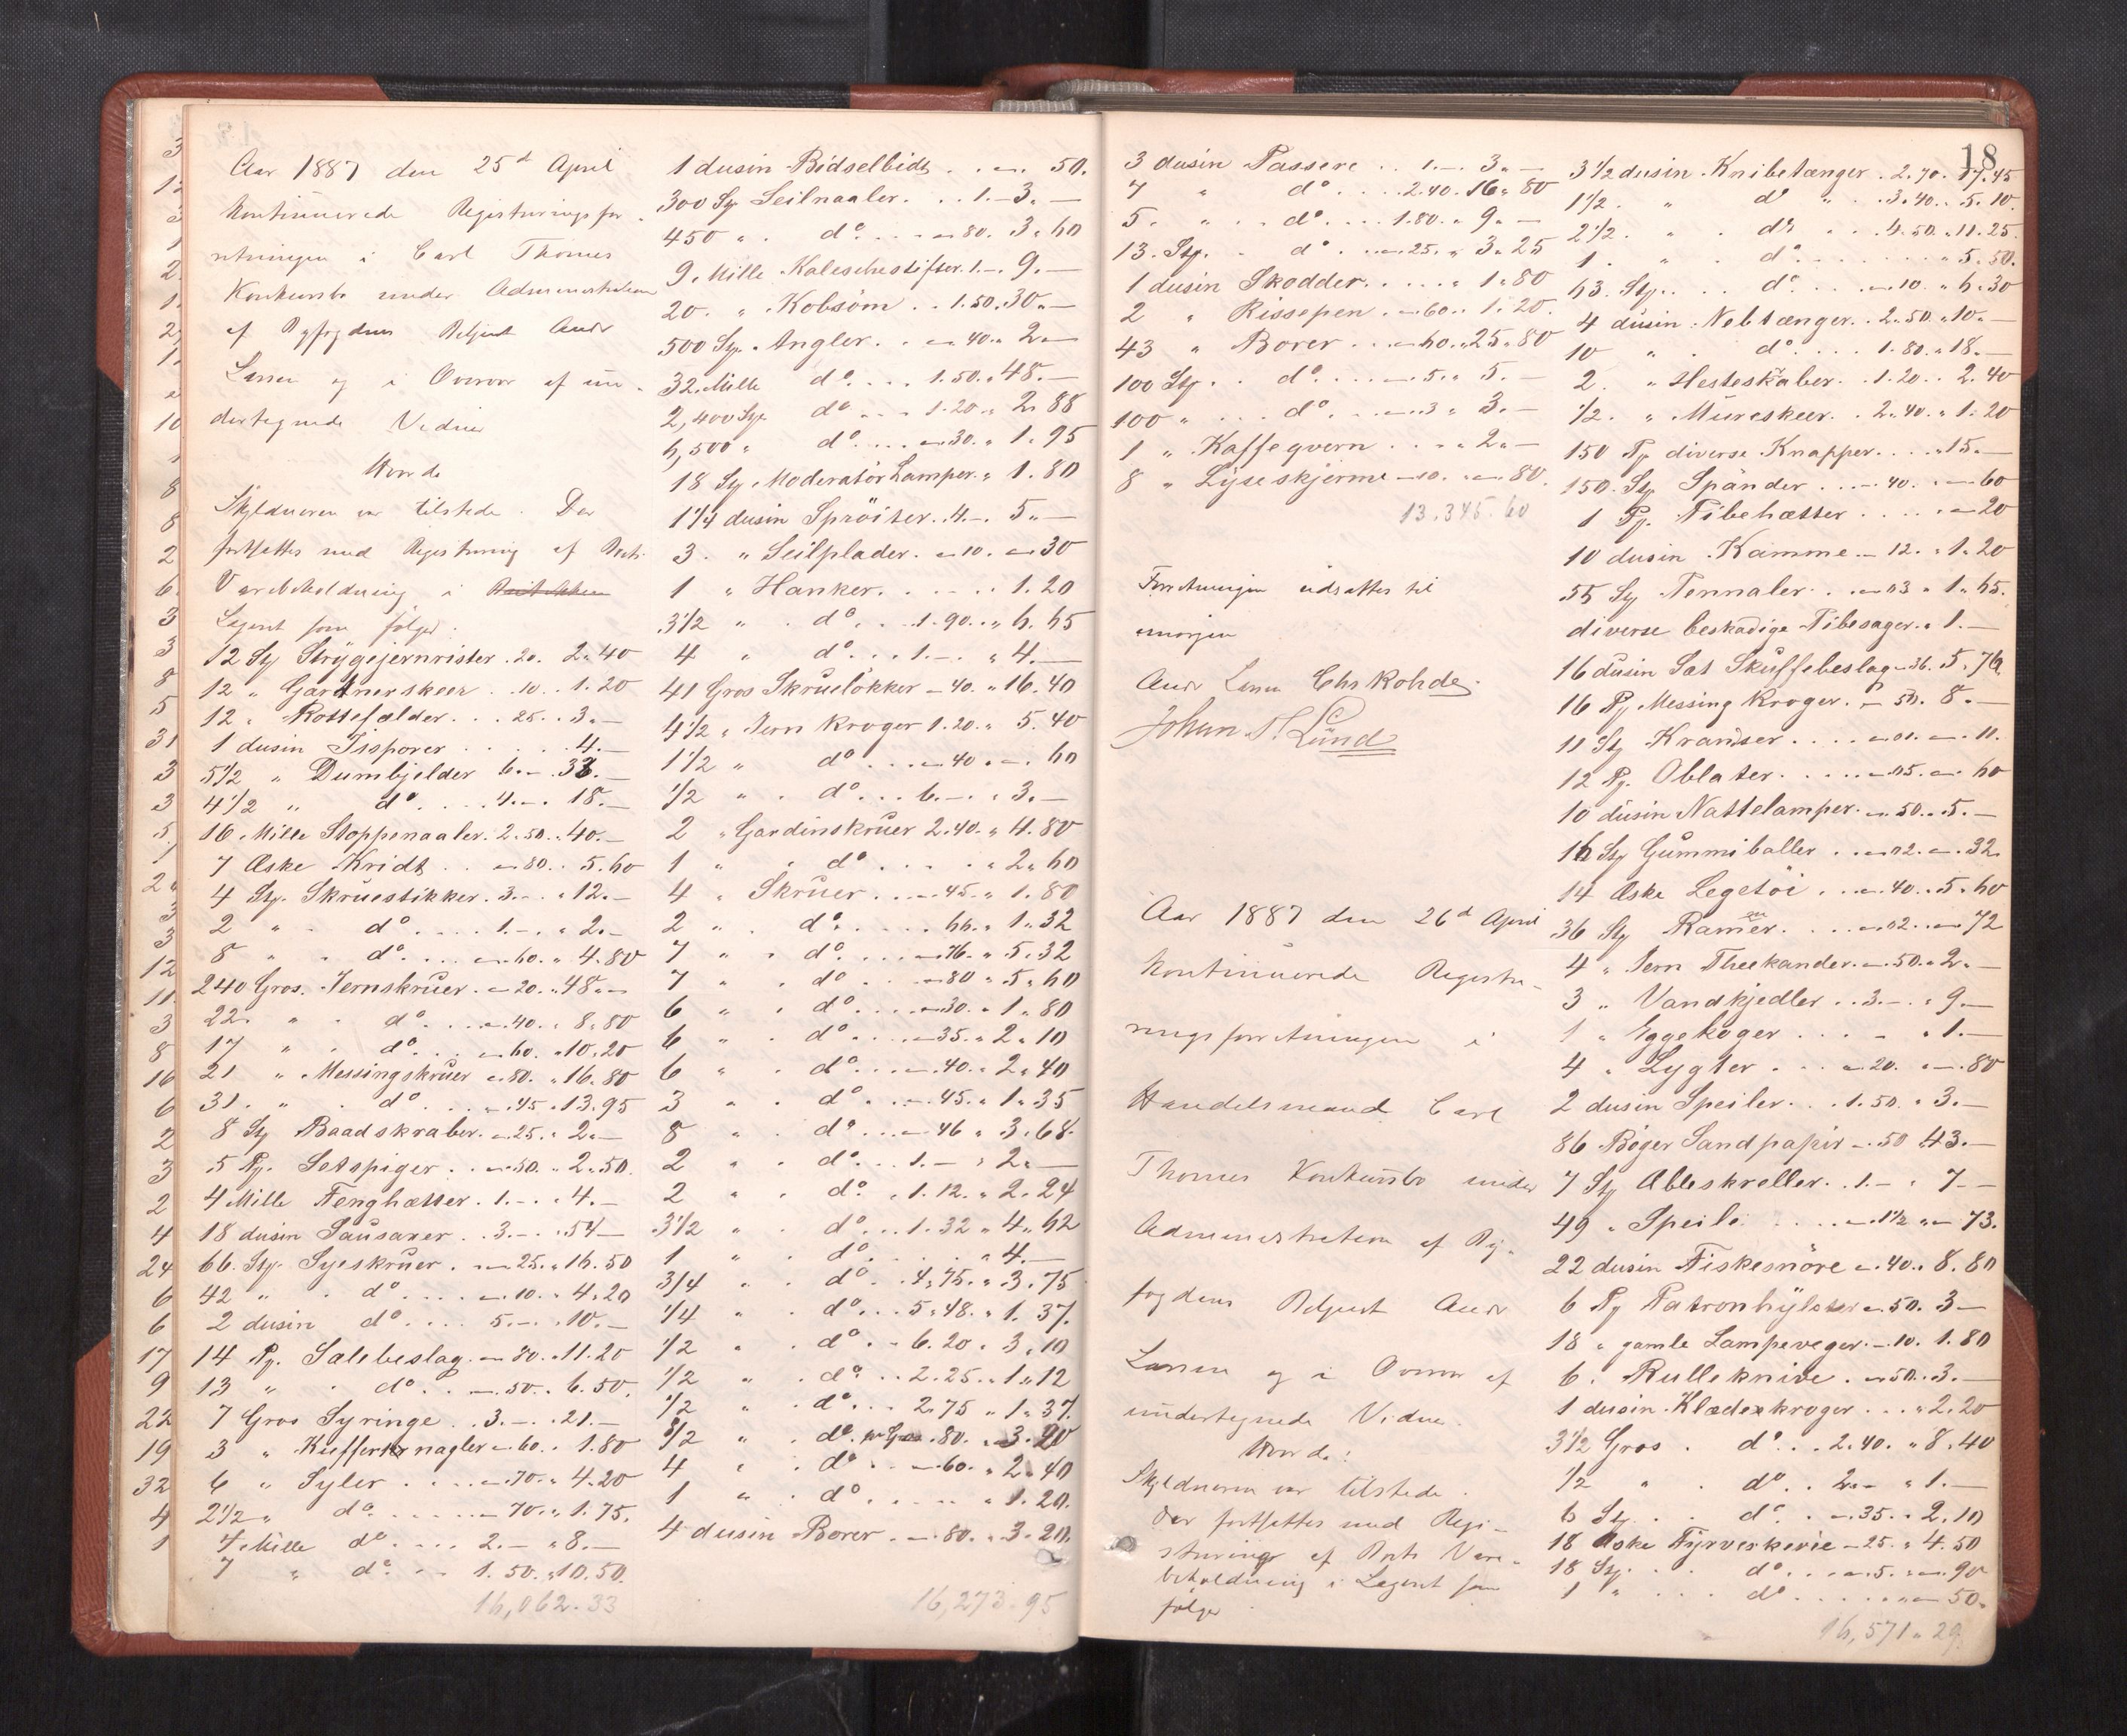 Aar 1887 den 25d April
kontinuerede Registeringsfor-
retningen i Carl Thomes
Konkursbo under Administration
af Byfogdens Betjent Andr
Larsen og i Overvær af un-
dertegnede Vidner
Hvorda
Skyldneren var tilstede. Der
fortsattes med Registrering af Boets
Varebeholdning i
Lageret som følger:
12 St Strygejernrister. 20. 2.40
12 " Gartnerskeer. 10. 1.20
12 " Rottefælder. 25. 3.—
1 dusin Isporer 4.—
5½ " Dumbjelder 6.— 33.—
4½ " do 4.— 18.—
16 Mille Stoppenaaler. 2.50. 40.—
7 Æske Kridt — 80. 5.60
4 St. Skruestikker. 3.— 12.—
2 " do 1.— 2.—
8 " do — 60. 4.80
240 Gros. Jernskruer. — 20. 48.—
22 " do — 40. 8.80
17 " do — 60. 10.20
21 " Messingskruer — 80. 16.80
31 " do — 45. 13.95
8 St Baadskraber. — 25. 2.—
5 Pj. Setspiger — 50. 2.50
4 Mille Fenghætter. 1.— 4.—
18 dusin Sausaxer. 3.— 54—
66 St. Syeskruer. — 25. 16.50
42 " do — 10. 4.20
2 dusin do 5.— 10.—
14 Pj. Salebeslag. — 80. 11.20
13 " do — 50. 6.50
7 Gros Syringe. 3.— 21.—
3 " Kuffertnagler — 60. 1.80
6 " Syler — 70. 4.20
2½ " do — 70. 1.75.
4 Mille do 2.— 8.—
7 " do 1.50. 10.50
16,062.33
1 dusin Bidselbidt — 50.
300 St Seilnaaler. 1.— 3.—
450 " do — 80. 3.60
9 Mille Kaleschestifter. 1.— 9.—
20 " Kobsöm 1.50. 30.—
500 St. Angler — 40. 2.—
32 Mille do 1.50. 48.—
2,400 St do 1.20. 2.88
6,500 " do — 30. 1.95
18 St Moderatör Lamper. 1.80
1¼ dusin Spröiter. 4.— 5.—
3 " Seilplader. — 10. — 30
1 " Hanker 1.20
3½ " do 1.90. 6.65
4 " do 1.— 4.—
41 Gros Skruelökker — 40. 16.40
4½ " Jern Kroger 1.20. 5.40
1½ " do — 40. — 60
½ " do 6.— 3.—
2 " Gardinskruer 2.40. 4.80
1 " do 2.60
4 " Skruer — 45. 1.80
2 " do 66. 1.32
7 " do — 76. 5.32
7 " do — 80. 5.60
6 " do — 30. 1.80
6 " do — 35. 2.10
6 " do — 40. 2.40
3 " do — 45. 1.35
8 " do — 46. 3.68
2 " do 1.— 2.—
2 " do 1.12. 2.24
3½ " do 1.32. 4.62
1 " do 4.—
3/4 " do 4.75. 3.75
1/4 " do 5.48. 1.37.
1/2 " do 6.20. 3.10
1/2 " do 2.25. 1.12
1/2 " do 2.75. 1.37
do pr Gros 80. 3.20
4 " do — 60. 2.40
1 " do 1.20.
4 dusin Borer — 80. 3.20.
16,273.95
3 dusin Passere 1.— 3.—
7 " do 2.40. 16.80
5 " do 1.80. 9.—
13. St. do — 25. 3.25
1 dusin Skodder 1.80
2 " Rissepen — 60. 1.20.
43 " Borer — 60. 25.80
100 St. do — 5. 5.—
100 " do — 3. 3.—
1 " Kaffeqvern 2.—
8 " Lyseskjerme — 10. — 80.
13.345.60
Forretningen udsattes til
imorgen
Andr Larsen Chr Rohde
Johan H. Lund
Aar 1887 den 26d April
kontinuerede Registre-
ringsforretningen i
Handelsmand Carl
Thomes Konkursbo under
Administration af By-
fogdens Betjent Andr
Larsen og i Overvær af
undertegnede Vidner.
Hvorda:
Skyldneren var tilstede.
Der fortsattes med Regi-
strering af Boets Vare-
beholdning i Lageret som
følger.
18
3½ dusin Knibetænger. 2.70. 17.45
1½ " do 3.40. 5.10.
2½ " do 4.50. 11.25.
1 " do 5.50.
63. St. do — 10. 6.30
4 dusin Nebtænger. 2.50. 10.—
10 " do 1.80. 18.—
2 " Hesteskraber. 1.20. 2.40
½ " Mureskeer. 2.40. 1.20
150 Pj diverse Knapper. 15.—
150. St Spänder — 40. — 60
1 Pj. Pibehætter — 20
10 dusin Kamme — 12. 1.20
55 St Pennaler — 03. 1.65.
diverse beskadige Pibesager. 1.—
16 dusin Sat Skuffebeslag — 36. 5.76
16 Pj Messing Kroger. — 50. 8.—
11 St Krandser — 01. — 11.
12 Pj. Oblater — 05. — 60
10 dusin Nattelamper — 50. 5.—
16 St Gummiballer — 02. — 32
14 Æske Legetöi — 40. 5.60
36 St Rammer — 02. — 72
4 " Jern Theekander — 50. 2.—
3 " Vandkjedler 3.— 9.—
1 " Eggekoger 1.—
4 " Lygter — 20. — 80
2 dusin Speiler 1.50. 3.—
86 Böger Sandpapir — 50 43.—
7 St Ableskreller. 1.— 7.—
49 " Speile — 1½ — 73.
22 dusin Fiskesnöre — 40. 8.80
6 Pj Patronhylster — 50. 3—
18 " gamle Lampeveger. — 10. 1.80
6. Rulleknive — 50. 3.—
1 dusin Klædeskroger 2.20
3½ Gros do 2.40. 8.40
½ " do 2.— 1.—
6 St. do — 35. 2.10
18 Æske Fyrverkerie — 25. 4.50
18 St. do — 5. — 90
1 " do — 50.
16,571.29